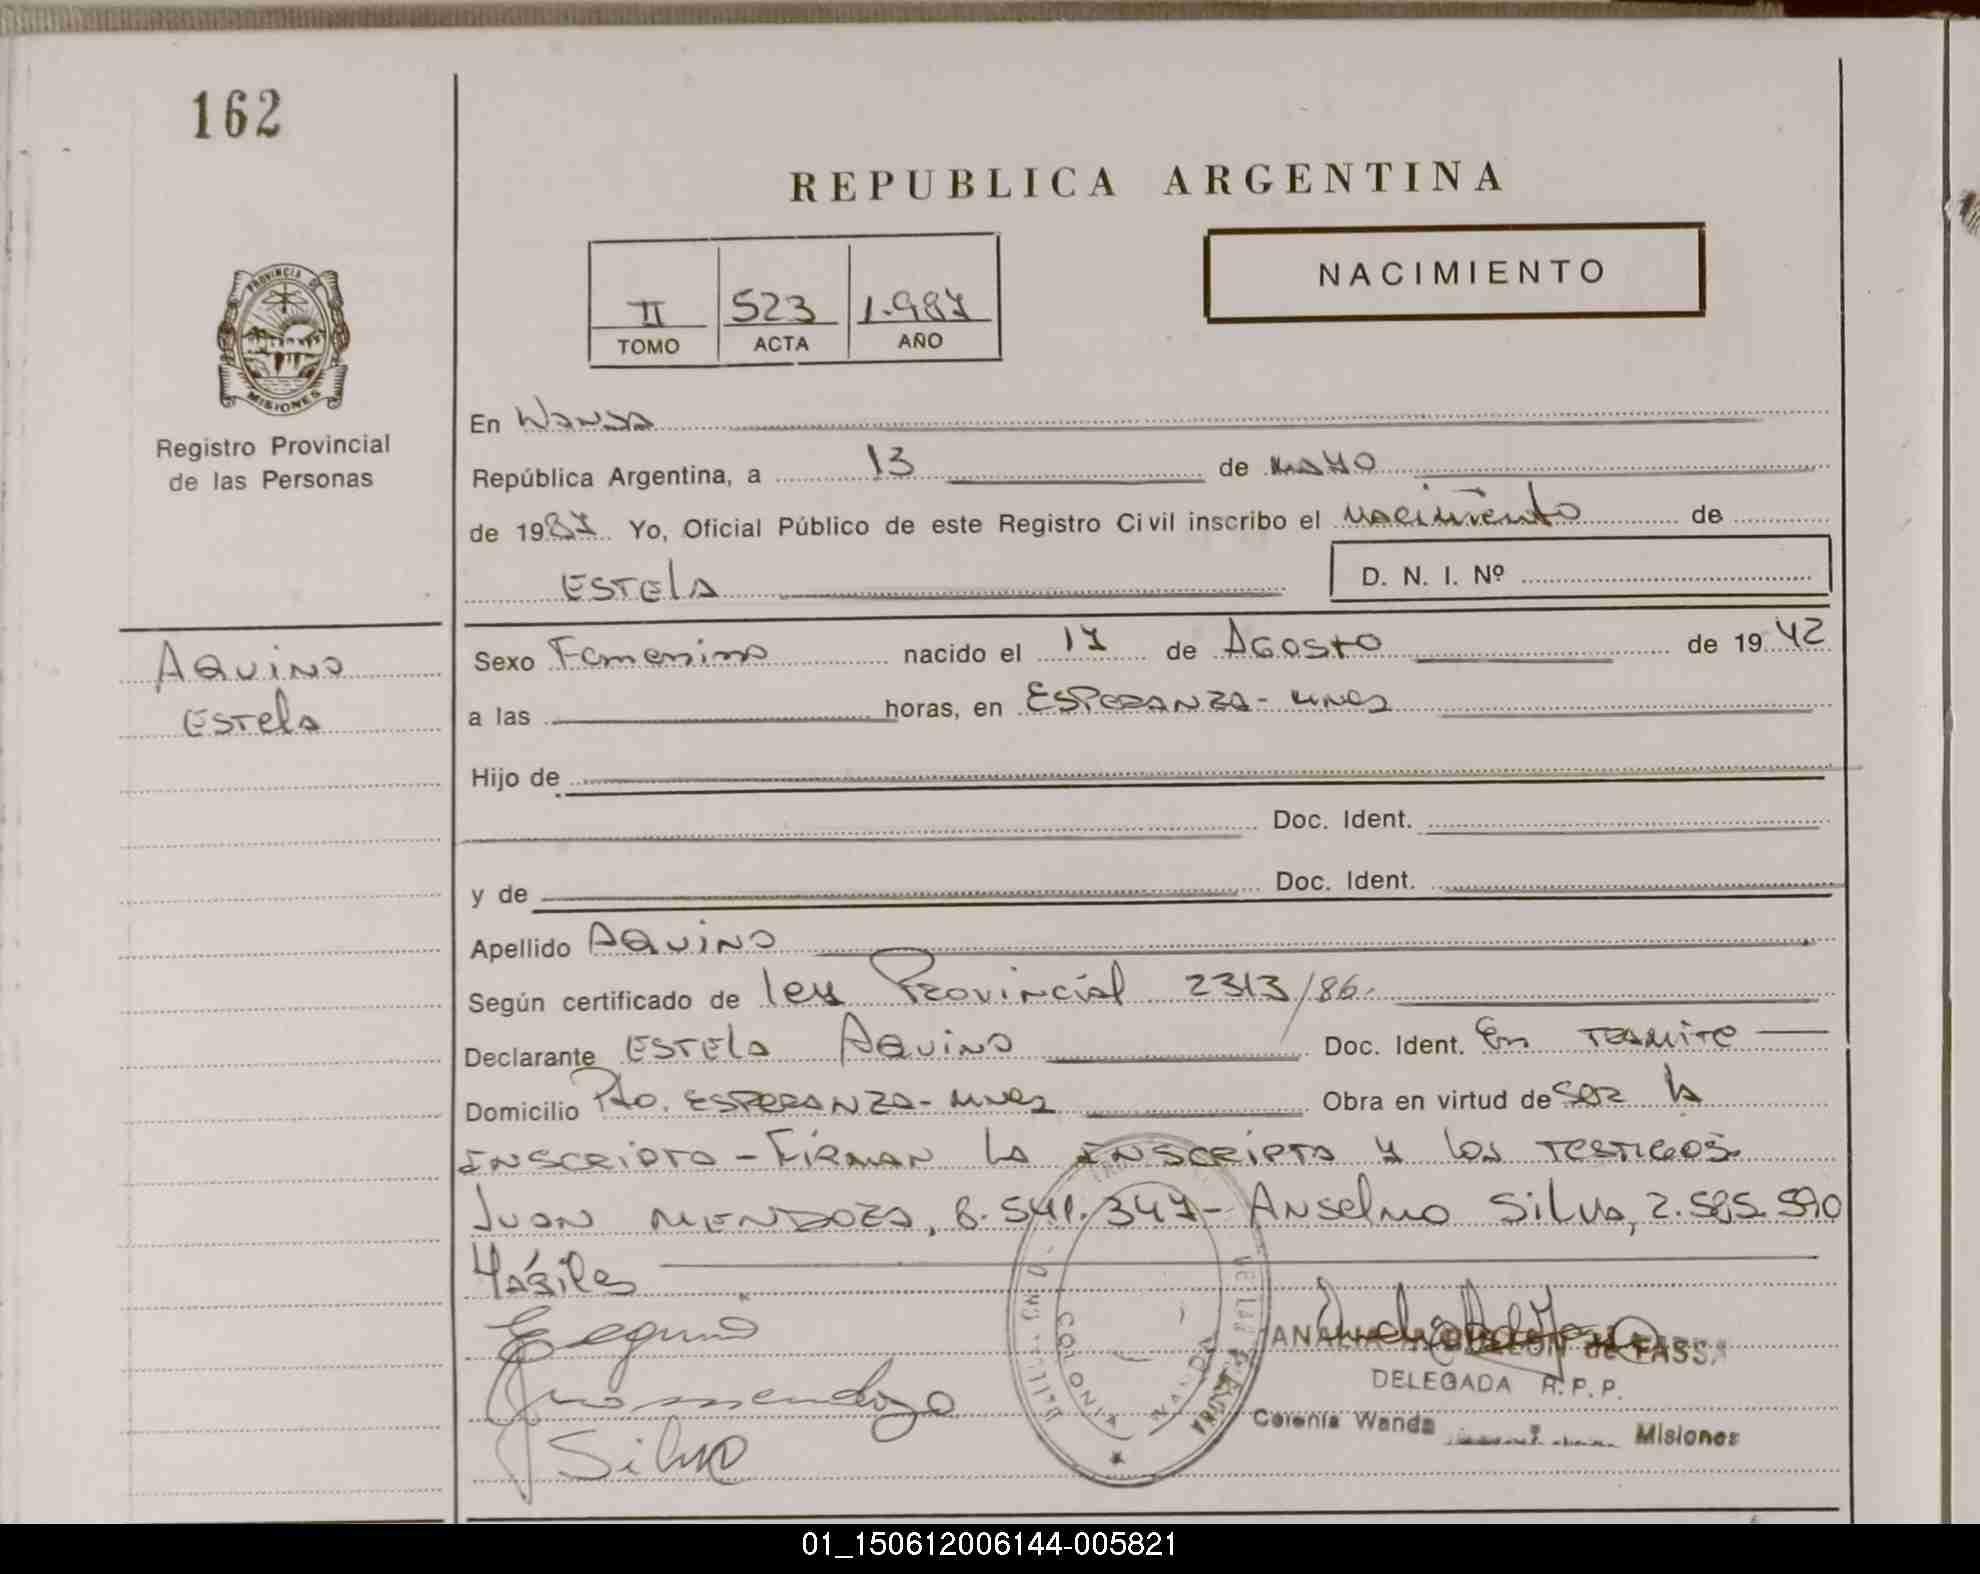 162
REPUBLICA ARGENTINA
NACIMIENTO
II 523 1.987
TOMO ACTA AÑO
PROVINCIA DE
MISIONES
Registro Provincial
de las Personas
En Wanda
República Argentina, a 13 de mayo
de 1987 Yo, Oficial Público de este Registro Civil inscribo el nacimiento de
Estela D. N. I. Nº
Aquino
Estela
Sexo Femenino nacido el 17 de Agosto de 1942
a las horas, en Esperanza - Mnes
Hijo de
Doc. Ident.
y de Doc. Ident.
Apellido Aquino
Según certificado de ley Provincial 2313/86.
Declarante Estela Aquino Doc. Ident. En tramite
Domicilio Pto. Esperanza - Mnes Obra en virtud de ser la
inscripta - Firman la inscripta y los testigos
Juan Mendoza, 8.541.347 - Anselmo Silva, 2.585.590
Hábiles
Juan mendoza
Silva
COLONIA WANDA
de FASSA
DELEGADA R.P.P.
Colonia Wanda Misiones
01_150612006144-005821